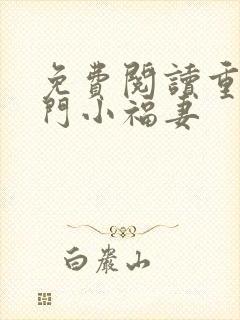 免費閱讀重
門小福妻
白巖山